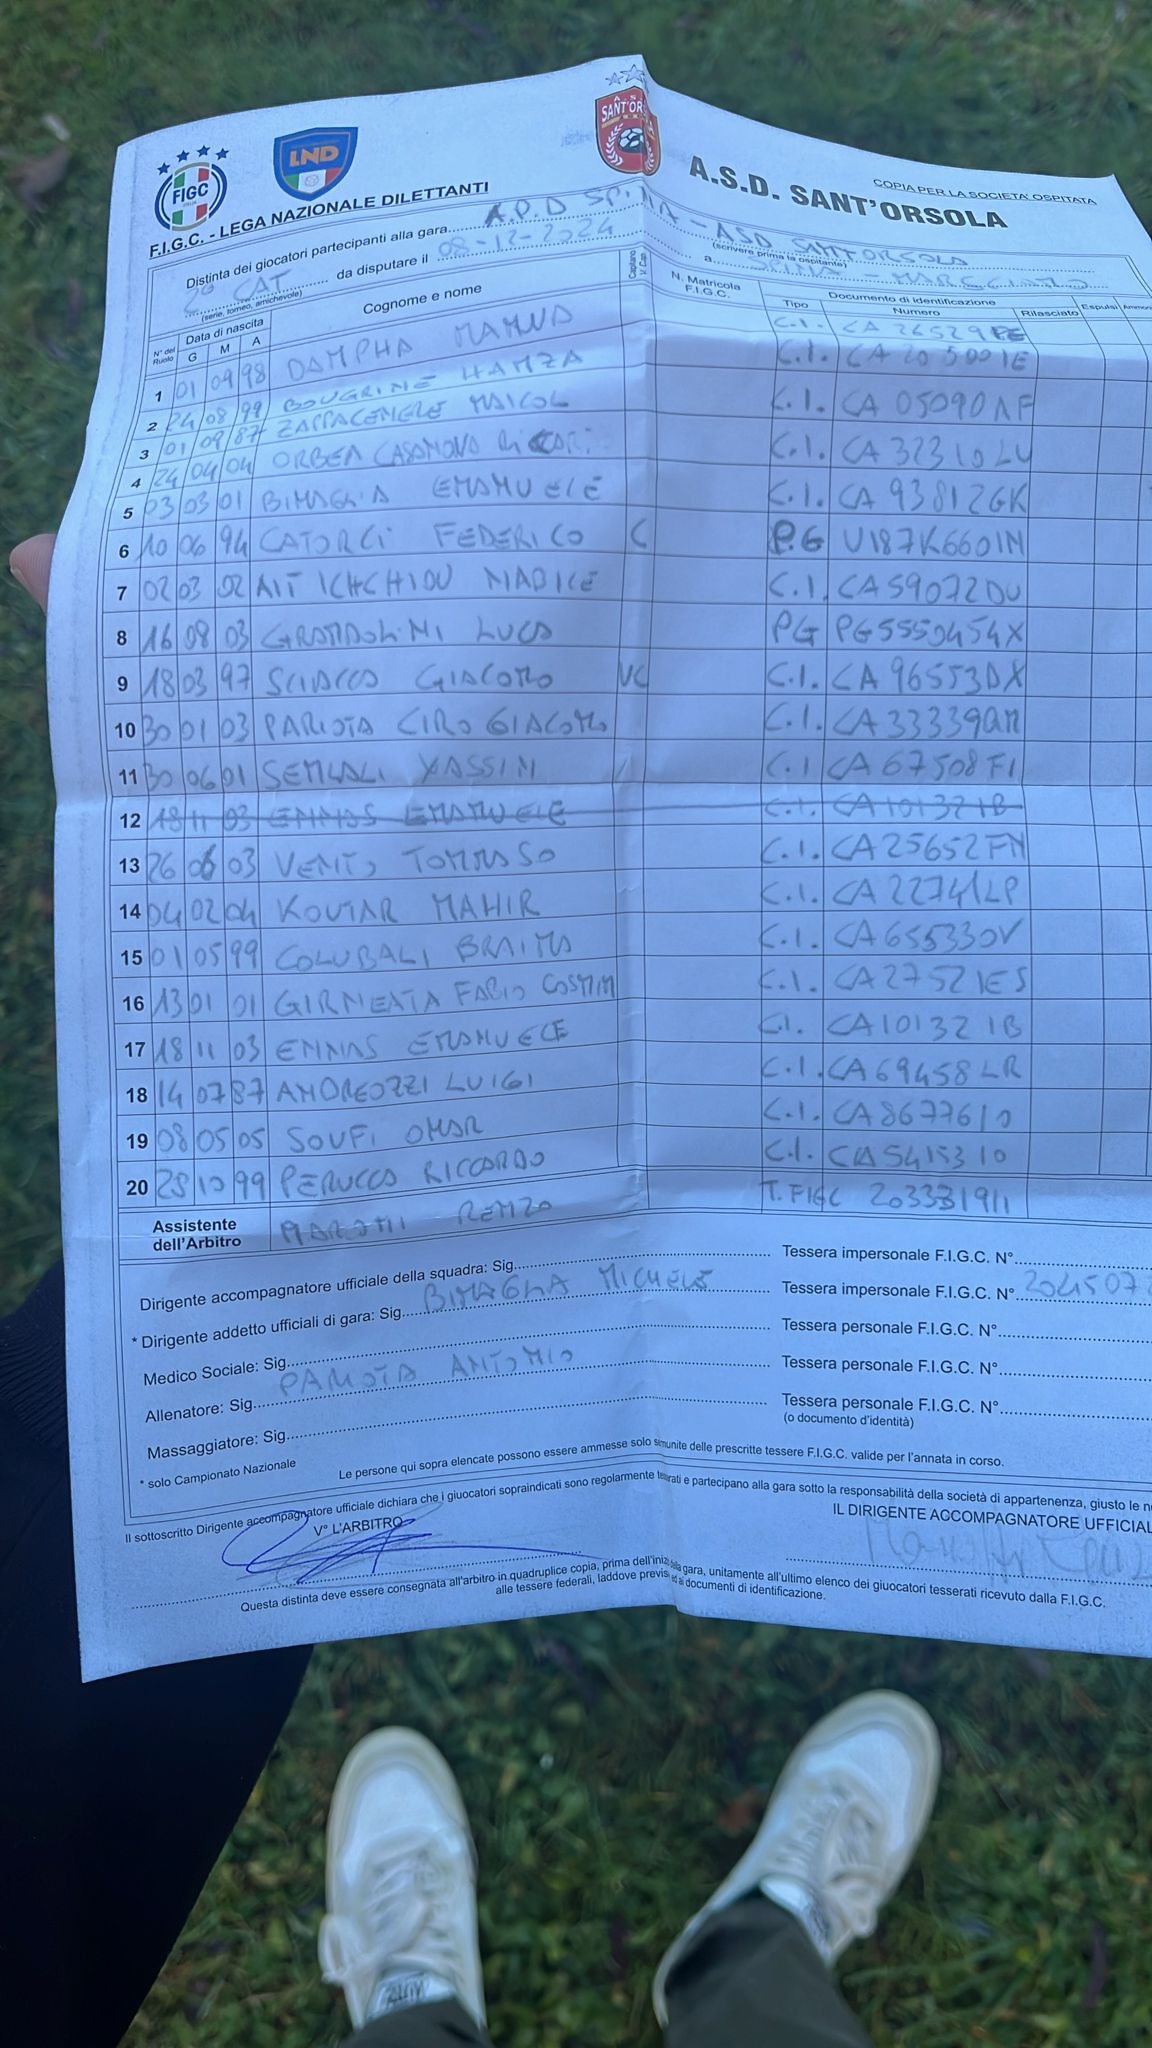 FIGC
LND
A.S. SANT'OR
COPIA PER LA SOCIETÀ OSPITATA
F.I.G.C. - LEGA NAZIONALE DILETTANTI
A.S.D. SANT'ORSOLA
Distinta dei giocatori partecipanti alla gara A.P.D SPINA - ASD SANT'ORSOLA
(scrivere prima la ospitante)
2a CAT da disputare il 08-12-2024 a SPINA - MARSCIANO
(serie, torneo, amichevole)
N° del Ruolo Data di nascita G M A Cognome e nome Capitano V. Cap. N. Matricola F.I.G.C. Documento di identificazione Tipo Numero Rilasciato Espulsi
1 01 09 98 DAMPHA C.I.
2 24 08 99 BOUGRINE HAMZA C.I.
3 01 09 87 ZAPPACENERE MAICOL C.I. CA 05090AF
4 24 04 04 ORBEA CASANOVA C.I. CA 32310LU
5 03 03 01 BIMAGLIA EMANUELE C.I. CA 93812GK
6 10 06 94 CATORCI FEDERICO C P.G U187K6601N
7 02 03 02 AIT ICHCHIOU NABILE C.I. CA59072DU
8 16 08 03 GRANDOLINI LUCA PG PG5550454X
9 18 03 97 SCIACCA GIACOMO VC C.I. CA 96553DX
10 30 01 03 PARIOTA CIRO GIACOMO C.I. CA33339QM
11 30 06 01 SEMLALI YASSIN C.I CA 67508FI
12 18 11 03 ENNAS EMANUELE C.I. CA101321B
13 26 06 03 VENTO TOMMASO C.I. CA25652FN
14 04 02 04 KOUTAR MAHIR C.I. CA22741LP
15 01 05 99 COLUBALI BRAIMA C.I. CA65533OV
16 13 01 01 GIRNEATA FABIO COSTMIN C.I. CA27521ES
17 18 11 03 ENNAS EMANUELE C.I. CA101321B
18 14 07 87 ANDREOZZI LUIGI C.I. CA69458LR
19 08 05 05 SOUFI OMAR C.I.
20 10 99 PERUCCA RICCARDO C.I.
Assistente dell'Arbitro RENZO T. FIGC 203331911
Dirigente accompagnatore ufficiale della squadra: Sig. Tessera impersonale F.I.G.C. N°
* Dirigente addetto ufficiali di gara: Sig. MICHELE Tessera impersonale F.I.G.C. N°
Medico Sociale: Sig. Tessera personale F.I.G.C. N°
Allenatore: Sig. PARIOTA ANTONIO Tessera personale F.I.G.C. N°
Massaggiatore: Sig. Tessera personale F.I.G.C. N°
(o documento d'identità)
* solo Campionato Nazionale
Le persone qui sopra elencate possono essere ammesse solo se munite delle prescritte tessere F.I.G.C. valide per l'annata in corso.
Il sottoscritto Dirigente accompagnatore ufficiale dichiara che i giuocatori sopraindicati sono regolarmente tesserati e partecipano alla gara sotto la responsabilità della società di appartenenza, giusto le
V° L'ARBITRO
IL DIRIGENTE ACCOMPAGNATORE UFFICIAL
Questa distinta deve essere consegnata all'arbitro in quadruplice copia, prima dell'inizio della gara, unitamente all'ultimo elenco dei giuocatori tesserati ricevuto dalla F.I.G.C.
alle tessere federali, laddove previsti, ed ai documenti di identificazione.